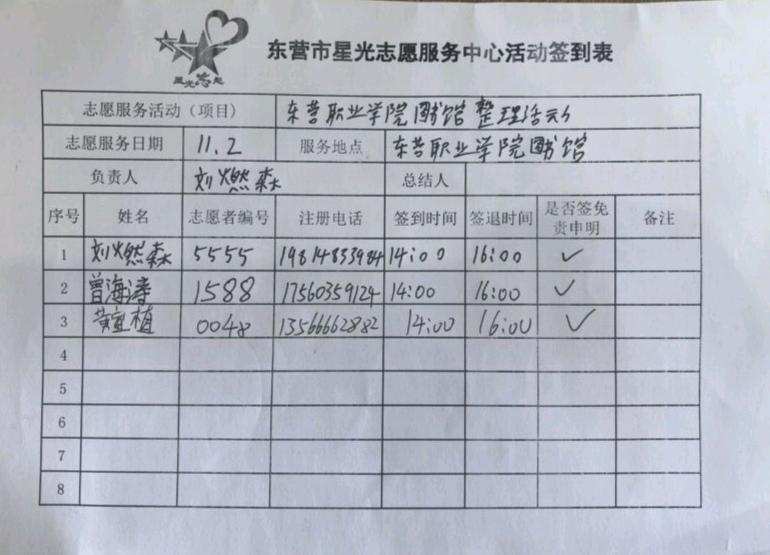 星光志愿
东营市星光志愿服务中心活动签到表
志愿服务活动（项目） 东营职业学院图书馆整理活动
志愿服务日期 11.2 服务地点 东营职业学院图书馆
负责人 刘燃森 总结人
序号 姓名 志愿者编号 注册电话 签到时间 签退时间 是否签免责申明 备注
1 刘燃森 5555 19814833984 14:00 16:00 ✓
2 曾海涛 1588 17560359124 14:00 16:00 ✓
3 黄宣植 0048 13566662882 14:00 16:00 ✓
4
5
6
7
8